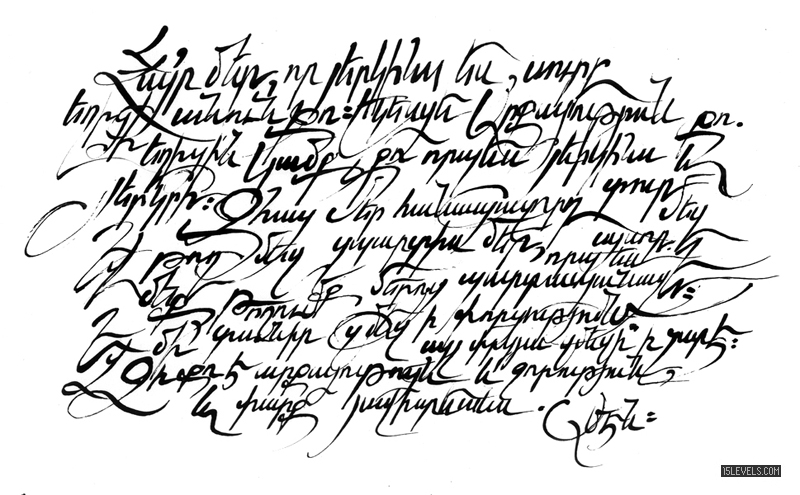 Հայր մեր, որ յերկինս ես, սուրբ
եղիցի անուն քո։ Եկեսցէ արքայութիւն քո.
Եղիցին կամք քո որպէս յերկինս և
յերկրի։ Զհաց մեր հանապազորդ տուր մեզ
այսօր.
Եւ թող մեզ զպարտիս մեր, որպէս և
մեք թողումք մերոց պարտապանաց։
Եւ մի տանիր զմեզ ի փորձութիւն
այլ փրկեա զմեզ ի չարէ։
Զի քո է արքայութիւն և զօրութիւն,
և փառք յաւիտեանս. Ամէն։
15LEVELS.COM